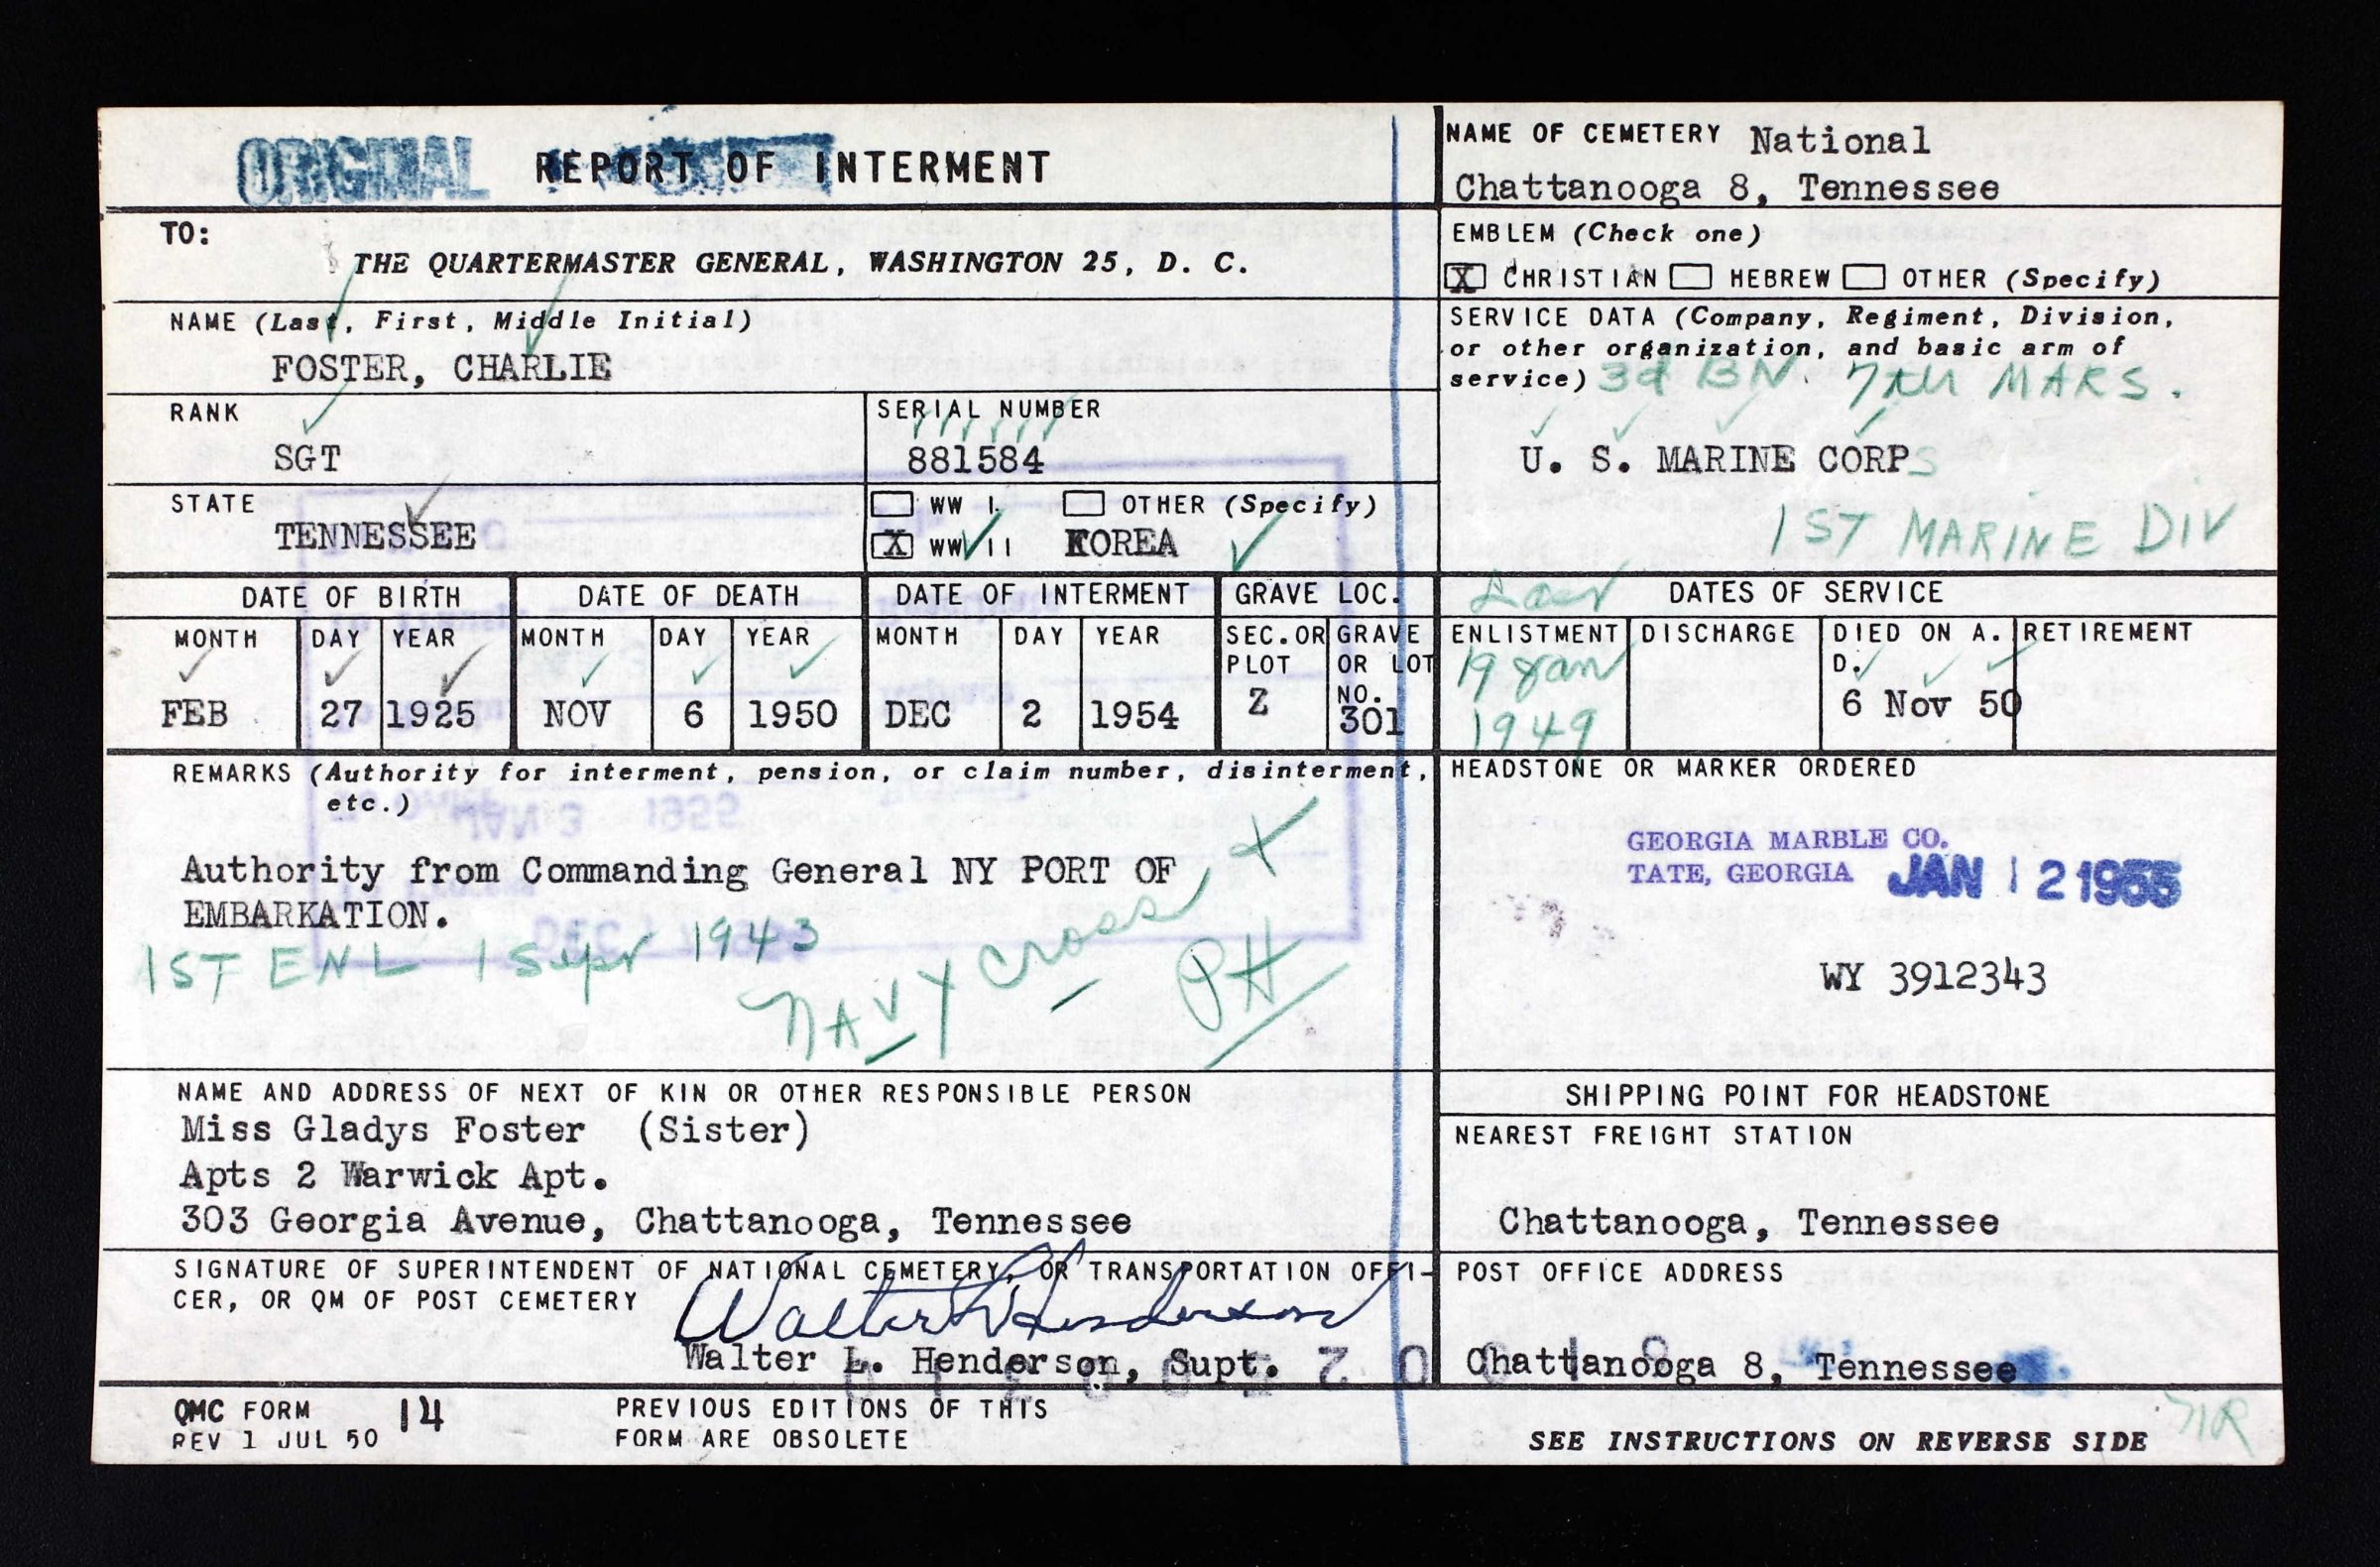 ORIGINAL REPORT OF INTERMENT
NAME OF CEMETERY National
Chattanooga 8, Tennessee
TO:
THE QUARTERMASTER GENERAL, WASHINGTON 25, D. C.
EMBLEM (Check one)
X CHRISTIAN HEBREW OTHER (Specify)
NAME (Last, First, Middle Initial)
FOSTER, CHARLIE
SERVICE DATA (Company, Regiment, Division,
or other organization, and basic arm of
service) 3d BN. 7TH MARS.
U. S. MARINE CORPS
1ST MARINE DIV
RANK
SGT
SERIAL NUMBER
881584
STATE
TENNESSEE
WW I OTHER (Specify)
X WW II KOREA
DATE OF BIRTH
MONTH DAY YEAR
FEB 27 1925
DATE OF DEATH
MONTH DAY YEAR
NOV 6 1950
DATE OF INTERMENT
MONTH DAY YEAR
DEC 2 1954
GRAVE LOC.
SEC. OR PLOT
Z
GRAVE OR LOT NO.
301
DATES OF SERVICE
ENLISTMENT DISCHARGE DIED ON A. D. RETIREMENT
19 Jan
1949
6 Nov 50
REMARKS (Authority for interment, pension, or claim number, disinterment,
etc.)
Authority from Commanding General NY PORT OF
EMBARKATION.
1ST ENL 1 Sept 1943
NAVY Cross
PH
HEADSTONE OR MARKER ORDERED
GEORGIA MARBLE CO.
TATE, GEORGIA JAN 12 1955
WY 3912343
NAME AND ADDRESS OF NEXT OF KIN OR OTHER RESPONSIBLE PERSON
Miss Gladys Foster (Sister)
Apts 2 Warwick Apt.
303 Georgia Avenue, Chattanooga, Tennessee
SHIPPING POINT FOR HEADSTONE
NEAREST FREIGHT STATION
Chattanooga, Tennessee
SIGNATURE OF SUPERINTENDENT OF NATIONAL CEMETERY, OR TRANSPORTATION OFFI-
CER, OR QM OF POST CEMETERY
Walter L Henderson
Walter L. Henderson, Supt.
POST OFFICE ADDRESS
Chattanooga 8, Tennessee
QMC FORM 14
REV 1 JUL 50
PREVIOUS EDITIONS OF THIS
FORM ARE OBSOLETE
SEE INSTRUCTIONS ON REVERSE SIDE